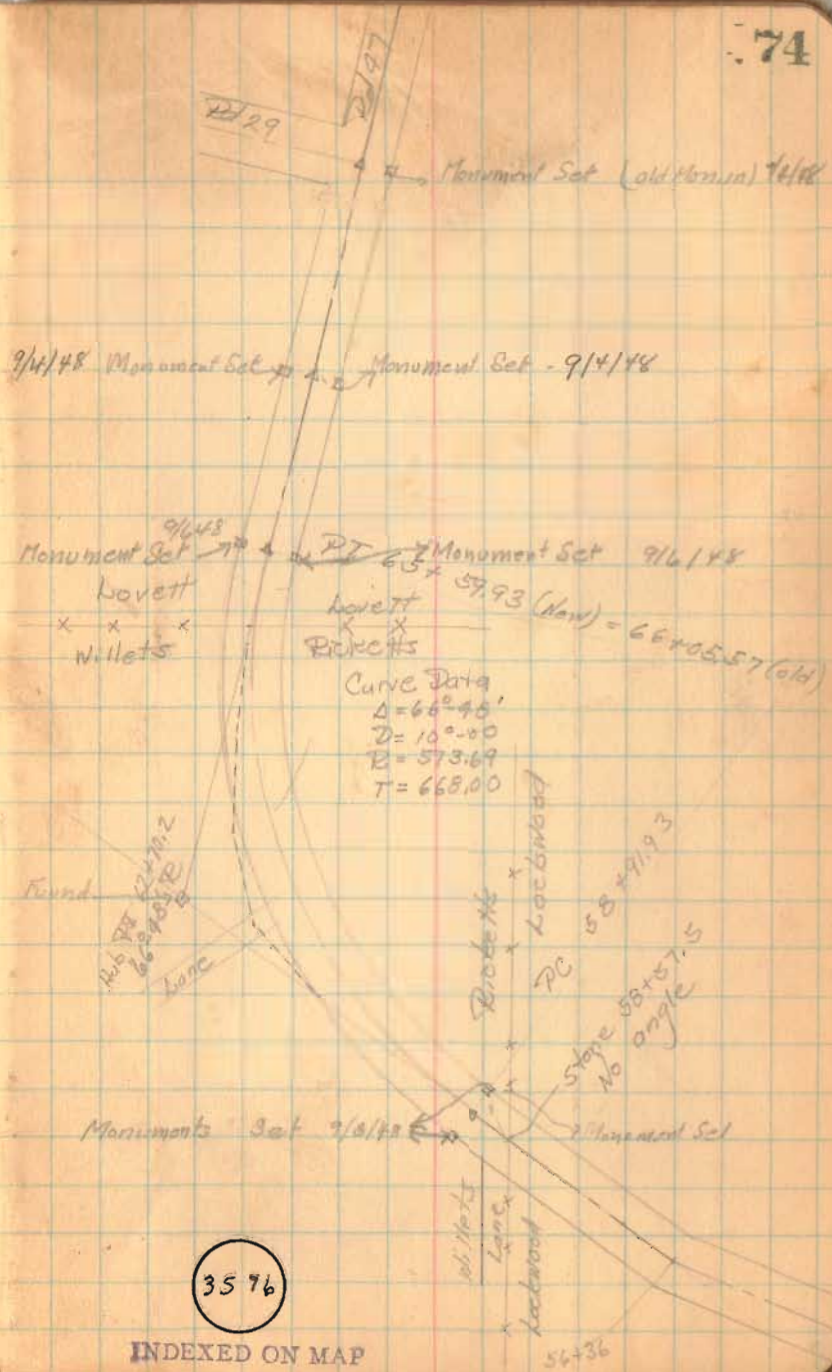 74
Rd 97
Rd 29
Monument Set (old Mon. in)
9/4/48 Monument Set
Monument Set - 9/4/48
9/6/48
Monument Set
PT 65+59.93 (New) = 66+05.57 (old)
Monument Set 9/6/48
Lovett
Willets
Lovett
Ricketts
Curve Data
Δ = 66°-48'
D = 10°-00
R = 573.69
T = 668.00
Found
Hub PI 62+70.2
66°-48'
Lane
Ricketts
Lockwood
PC 58+91.93
Stone 58+57.5
No angle
Monuments Set 9/8/48
Monument Set
Willets
Lane
Lockwood
56+36
3576
INDEXED ON MAP